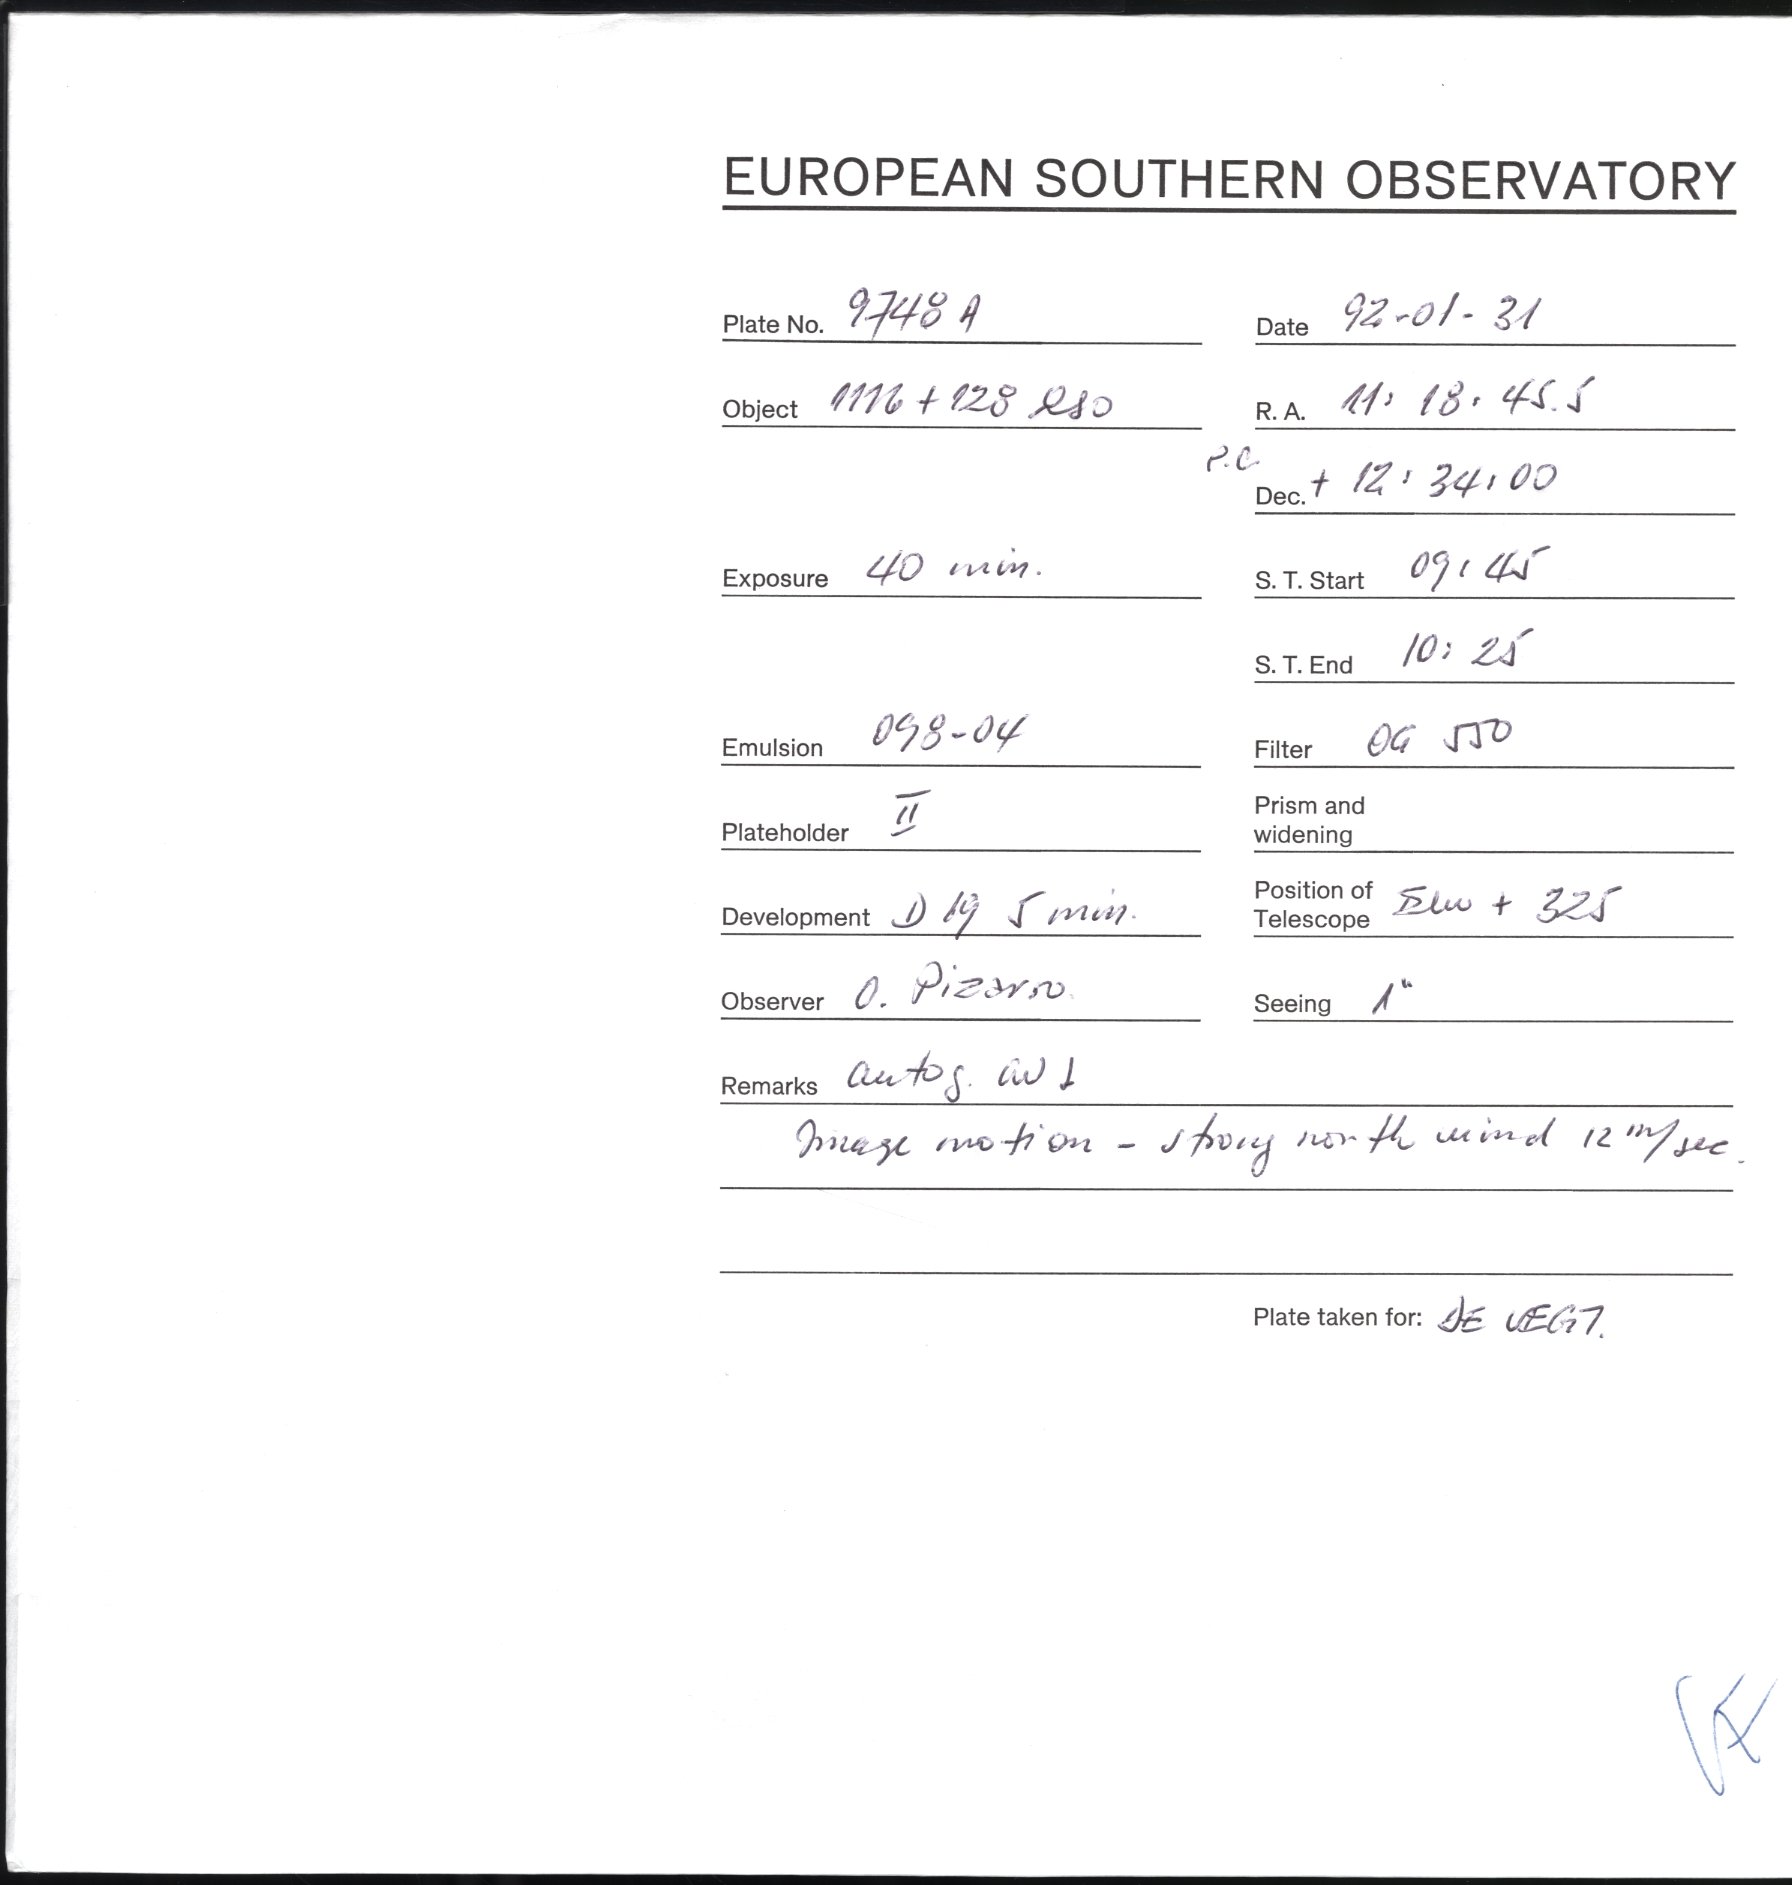 EUROPEAN SOUTHERN OBSERVATORY
Plate No. 9748 A Date 92-01-31
Object 1116 + 128 QSO R. A. 11: 18: 45.5
P.C.
Dec. + 12: 34: 00
Exposure 40 min. S. T. Start 09: 45
S. T. End 10: 25
Emulsion 098-04 Filter OG 550
Plateholder II Prism and
widening
Development D 19 5 min. Position of
Telescope + 325
Observer O. Pizarro. Seeing 1"
Remarks autog.
Image motion - strong north wind 12 m/sec.
Plate taken for: DE VEGT.